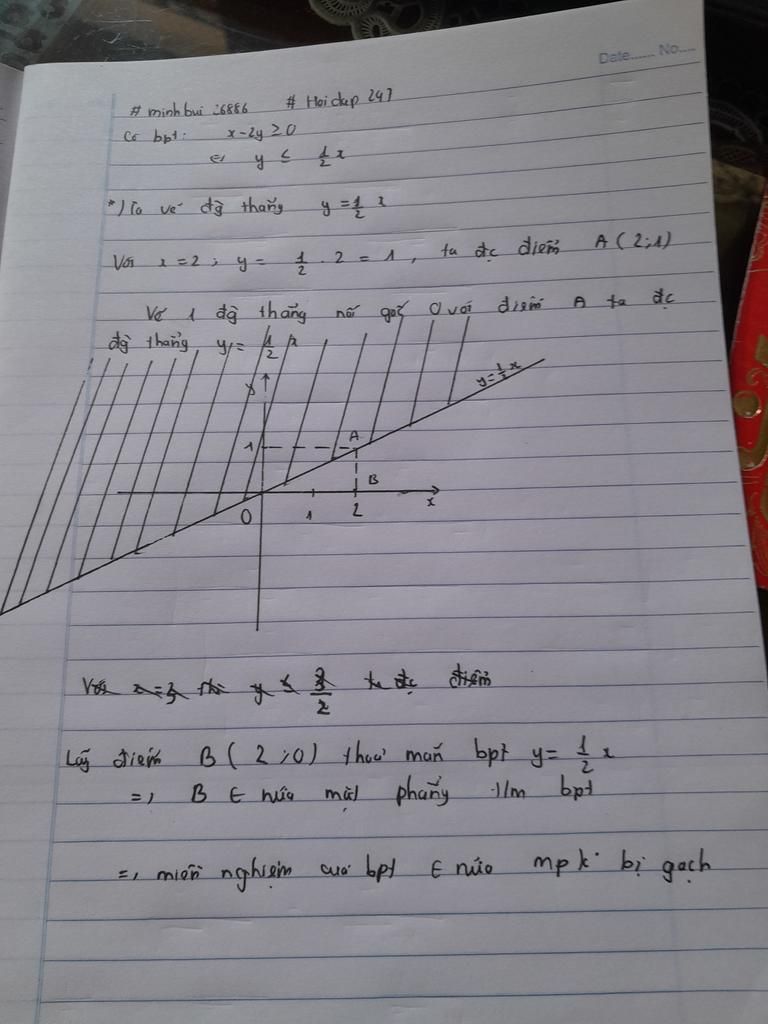 Date...... No....
# minhbui 26886 # Hoidap 247
Có bpt: x - 2y ≥ 0
⇔ y ≤ 1/2 x
*) Ta vẽ đg thẳng y = 1/2 x
Với x = 2 ; y = 1/2 . 2 = 1 , ta đc điểm A ( 2 ; 1 )
Vẽ 1 đg thẳng nối gốc O với điểm A ta đc
đg thẳng y = 1/2 x
y
y = 1/2 x
1 A
B
O 1 2 x
Với x = 3 thì y ≤ 3/2 ta đc điểm
Lấy điểm B ( 2 ; 0 ) thoả mãn bpt y = 1/2 x
=> B ∈ nửa mặt phẳng t/m bpt
=> miền nghiệm của bpt ∈ nửa mp k bị gạch